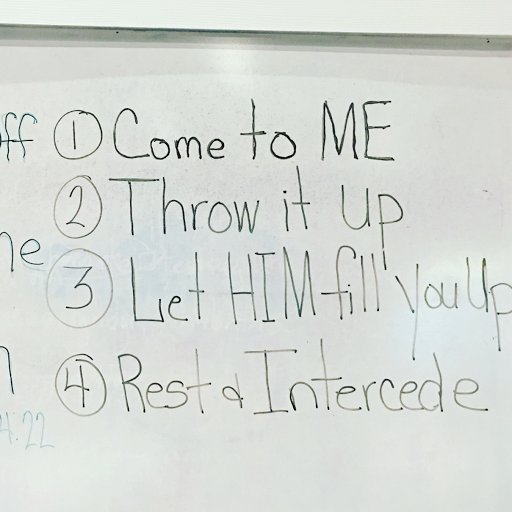 ① Come to ME
② Throw it up
③ Let HIM fill you Up
④ Rest & Intercede